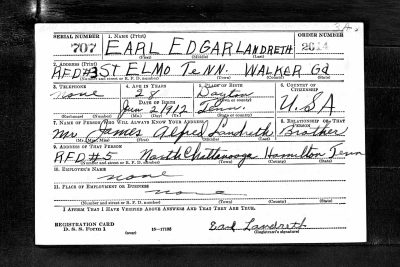 SERIAL NUMBER 1. NAME (Print) ORDER NUMBER
707 EARL EDGAR LANDRETH
(First) (Middle) (Last)
2. ADDRESS (Print)
R.F.D #3 ST ELMO TENN. WALKER Ga
(Number and street or R. F. D. number) (Town) (County) (State)
3. TELEPHONE 4. AGE IN YEARS 5. PLACE OF BIRTH 6. COUNTRY OF CITIZENSHIP
none 28 Dayton
DATE OF BIRTH (Town or county)
2 1912 Tenn. U.S.A
(Mo.) (Day) (Yr.) (State or country)
7. NAME OF PERSON WHO WILL ALWAYS KNOW YOUR ADDRESS 8. RELATIONSHIP OF THAT PERSON
Mr. James Alfred Landreth Brother
(Mr., Mrs., Miss) (First) (Middle) (Last)
9. ADDRESS OF THAT PERSON
R.F.D. #5 North Chattanooga Hamilton Tenn
(Number and street or R. F. D. number) (Town) (County) (State)
10. EMPLOYER'S NAME
none
11. PLACE OF EMPLOYMENT OR BUSINESS
none
(Number and street or R. F. D. number) (Town) (County) (State)
I AFFIRM THAT I HAVE VERIFIED ABOVE ANSWERS AND THAT THEY ARE TRUE.
REGISTRATION CARD
D. S. S. Form 1 (over) 16-17105 Earl Landreth
(Registrant's signature)